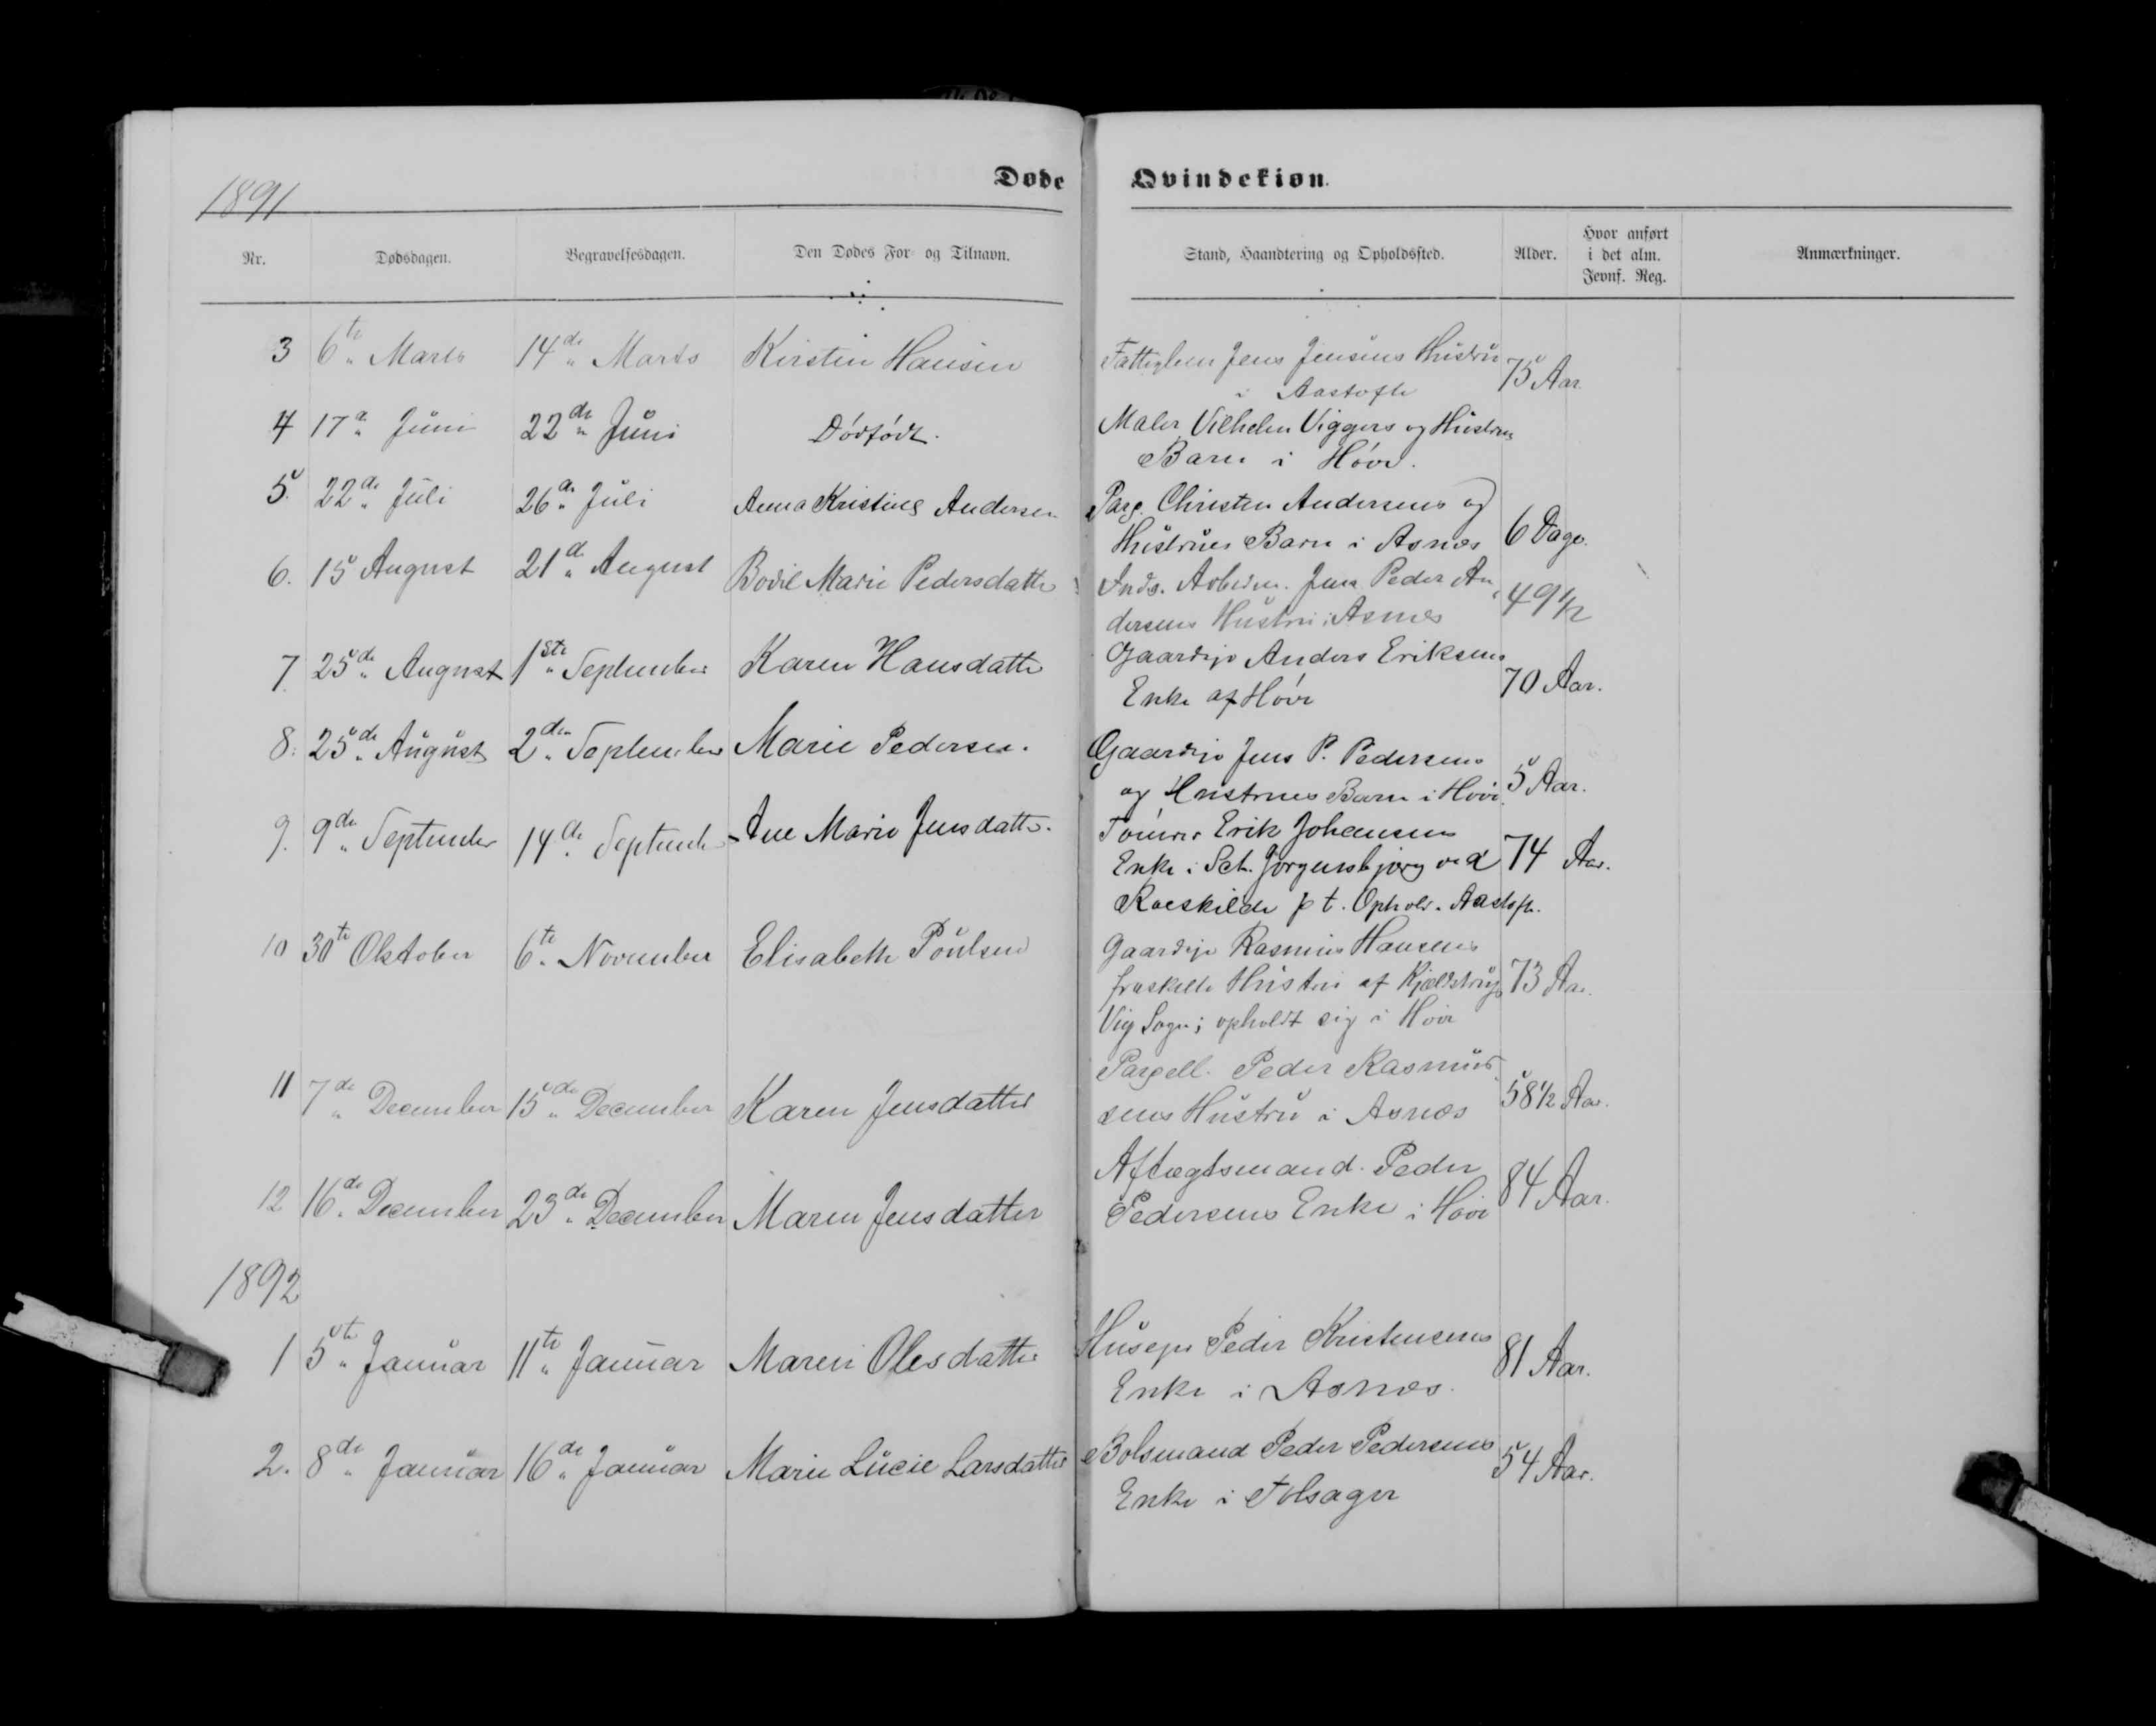 Døde Qvindekiøn.
1891
Nr. Dødsdagen. Begravelsesdagen. Den Dødes For- og Tilnavn. Stand, Haandtering og Opholdssted. Alder. Hvor anført i det alm. Jevnf. Reg. Anmærkninger.
3 6te Marts 14de Marts Kirstin Hansen Fattiglem Jens Jensens Hustru 75 Aar
i Aastofte
4 17de Juni 22de Juni Dødfødt. Maler Vilhelm Viggers og Hustrus
Barn i Høve.
5. 22de Juli 26de Juli Anna Kristine Andersen Parc. Christen Andersens og
Hustrues Barn i Asnæs 6 Dage.
6. 15 August 21de August Bodil Marie Pedersdatter Inds. Arbeidsm. Jens Peder An
dersens Hustru i Asnæs 49 1/2
7. 25de August 1ste September Karen Hansdatter Gaardejer Anders Eriksens
Enke af Høve 70 Aar.
8. 25de August 2den September Marie Pedersen. Gaardejer Jens P. Pedersens
og Hustrues Barn i Høve. 5 Aar.
9. 9de September 14de September Ane Marie Jensdatter. Tømrer Erik Johansens
Enke i Sct. Jørgensbjerg ved 74 Aar.
Roeskilde p t. Ophold. Aastofte.
10 30te Oktober 6te November Elisabeth Poulsen Gaardejer Rasmus Hansens
fraskilte Hustru af Kjeldstrup 73 Aar.
Vig Sogn; opholdt sig i Høve
11 7de December 15de December Karen Jensdatter Parcell. Peder Rasmus
sens Hustru i Asnæs 58 1/2 Aar.
12 16de December 23de December Maren Jensdatter Aftægtsmand Peder
Pedersens Enke i Høve 84 Aar.
1892
1 5te Januar 11te Januar Maren Olesdatter Huusejer Peder Kristensens
Enke i Asnæs. 81 Aar.
2. 8de Januar 16de Januar Marie Lucie Larsdatter Bolsmand Peder Pedersens
Enke i Tolsager 54 Aar.